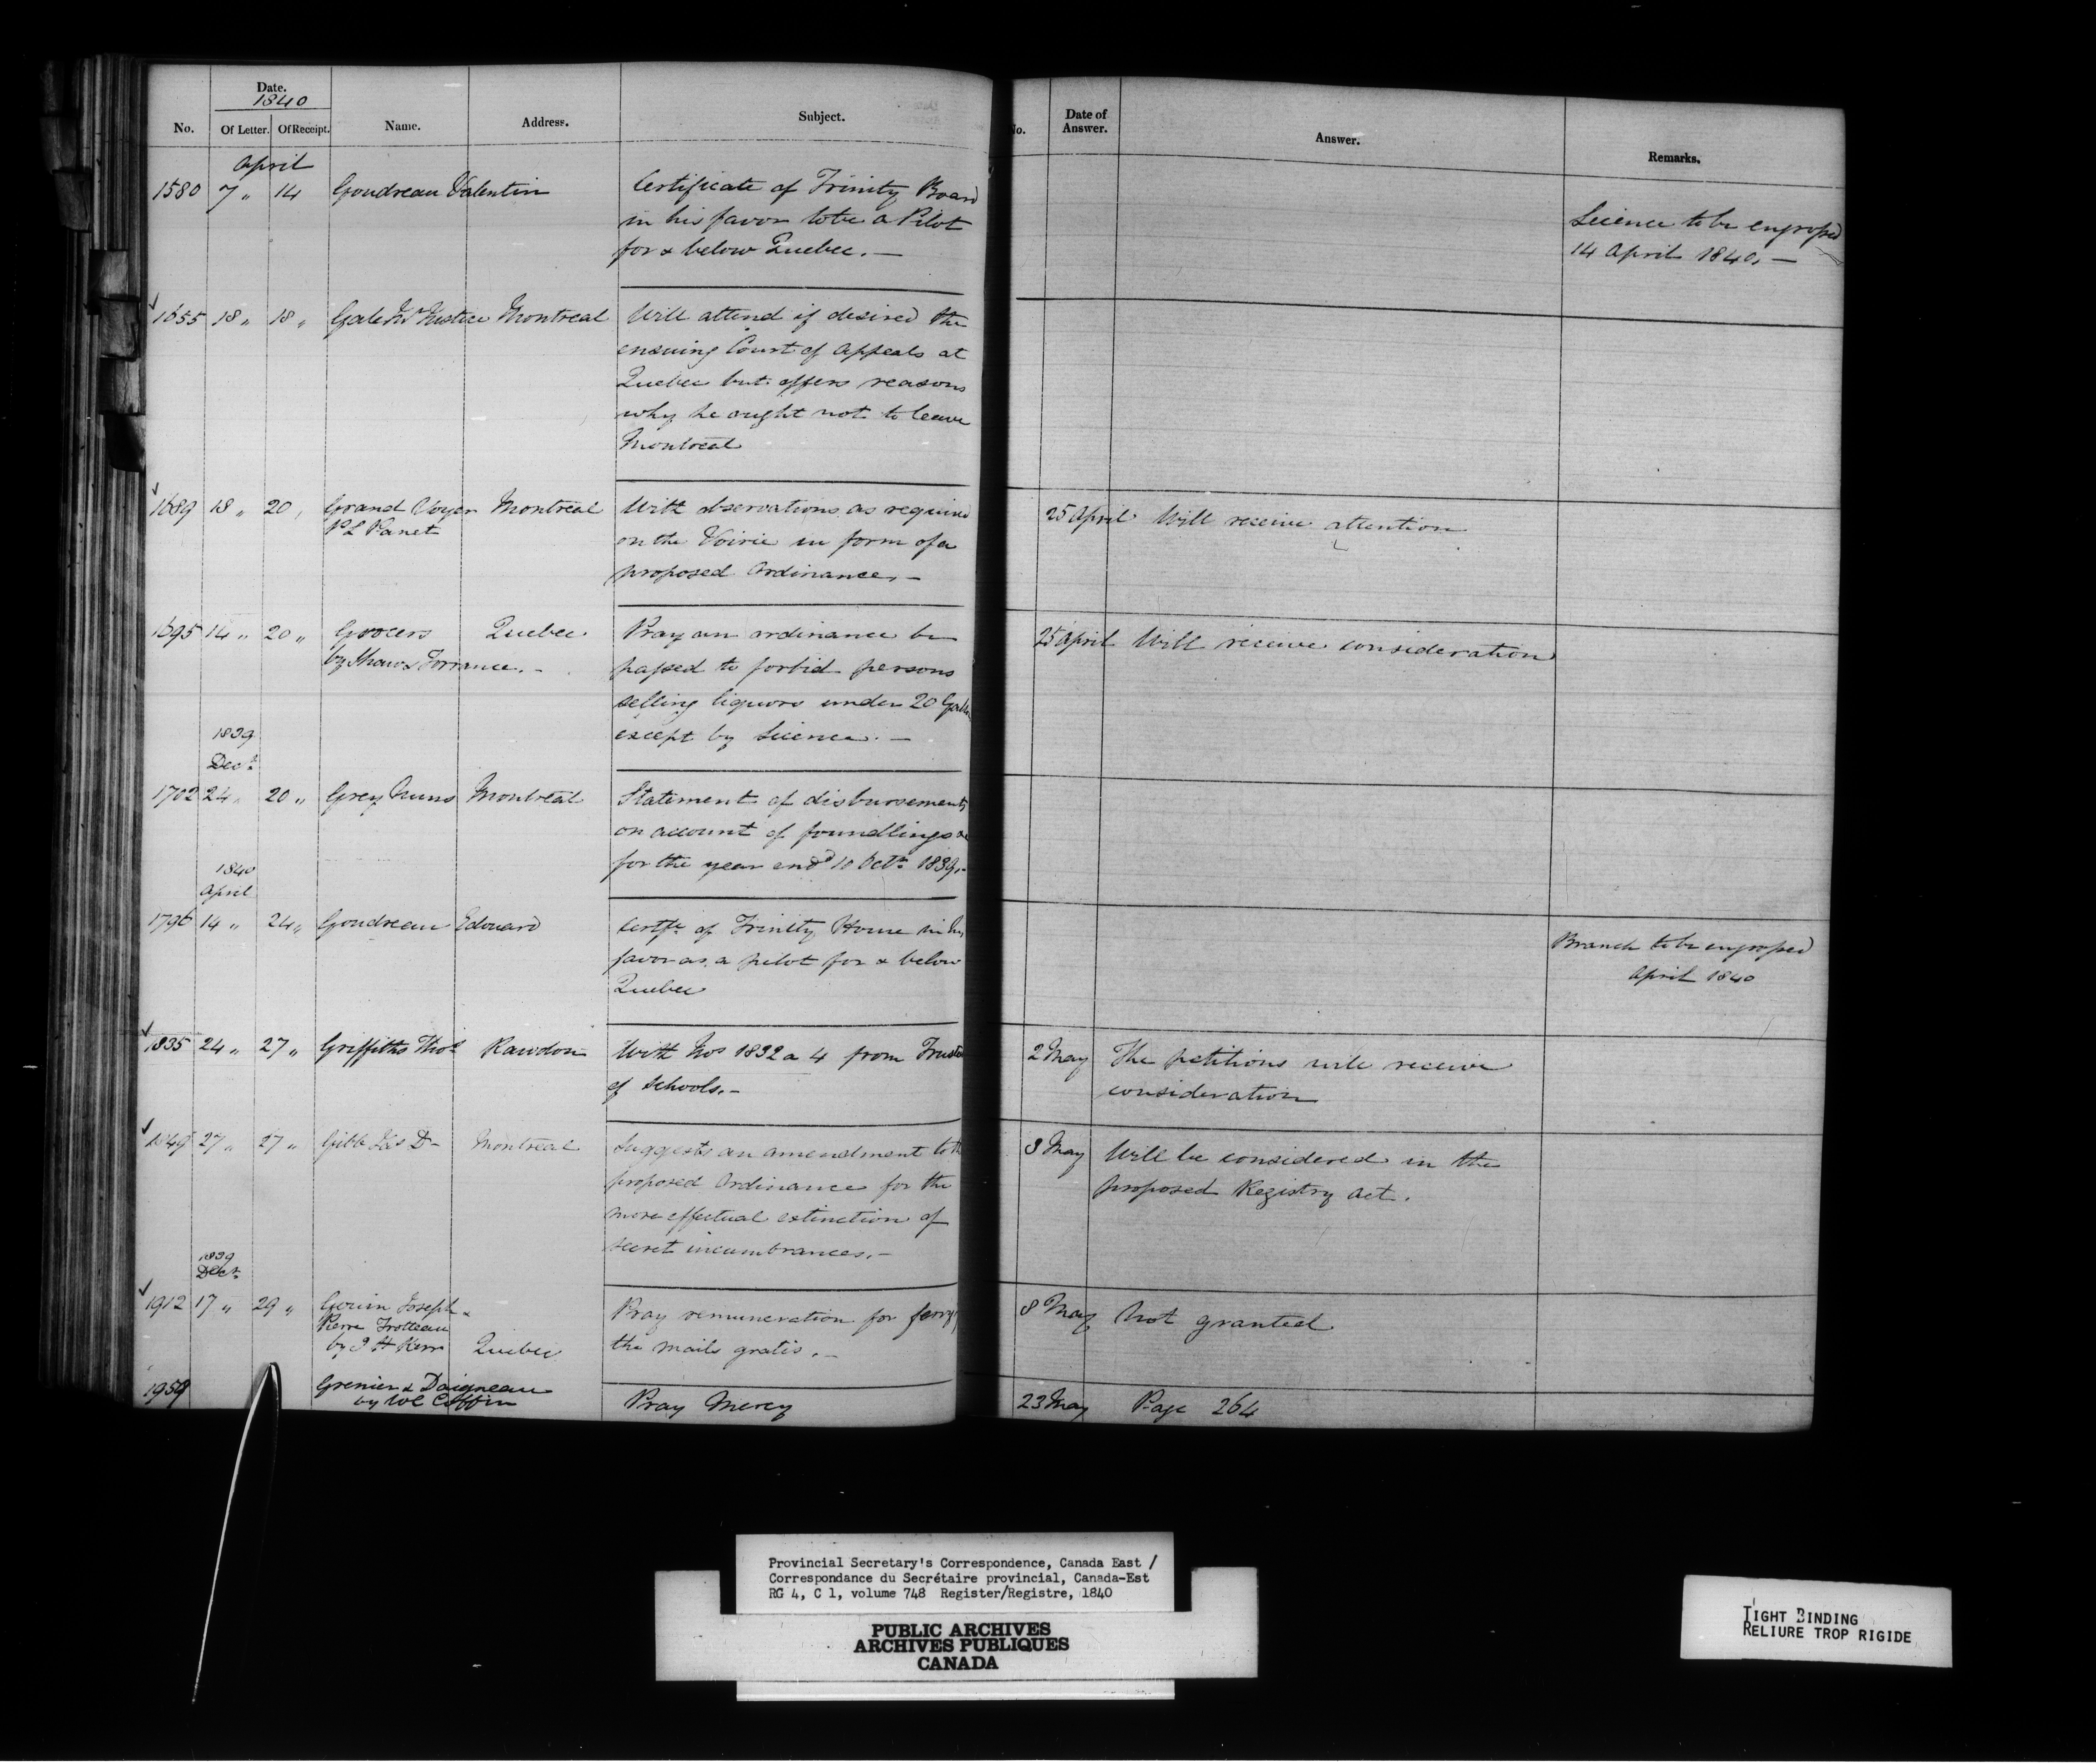 Date.
1840
No. Of Letter. Of Receipt. Name. Address. Subject.
No. Date of Answer. Answer. Remarks.
April
1580 7 " 14 Goudreau Valentin Certificate of Trinity Board
in his favor to be a Pilot
for & below Quebec. —
Licence to be engrossed
14 April 1840. —
1655 18 " 18 " Gale Mr Justice Montreal Will attend if desired the
ensuing Court of Appeals at
Quebec but offers reasons
why he ought not to leave
Montreal
1689 18 " 20 " Grand Voyer Montreal With observations as required
P L Panet on the Voirie in form of a
proposed Ordinance. —
25 April Will receive attention
1695 14 " 20 " Grocers Quebec Pray an ordinance be
by Shaw & Torrance. — passed to forbid persons
selling liquors under 20
except by Licence. —
25 April Will receive consideration
1839
Decr
1702 24 " 20 " Grey Nuns Montreal Statement of disbursements
on account of foundlings &c
for the year endd 10 Octr 1839. —
1840
April
1796 14 " 24 " Goudreau Edouard Certfe of Trinity House in his
favor as a pilot for & below
Quebec
Branch to be engrossed
April 1840
1835 24 " 27 " Griffiths Thos Rawdon With Nos 1832 a 4 from
of Schools. —
2 May The petitions will receive
consideration
1849 27 " 27 " Gibb Jas D — Montreal Suggests an amendment to the
proposed Ordinance for the
more effectual extinction of
secret incumbrances. —
8 May Will be considered in the
proposed Registry Act.
1839
Decr
1912 17 " 29 " Gouin Joseph & Pray remuneration for
Pierre Trotteau the mails gratis. —
by J H Kerr Quebec
8 May Not granted
1959 Grenier & Daigneau Pray Mercy
by W C Coffin
23 May Page 264
Provincial Secretary's Correspondence, Canada East /
Correspondance du Secrétaire provincial, Canada-Est
RG 4, C 1, volume 748 Register/Registre, 1840
PUBLIC ARCHIVES
ARCHIVES PUBLIQUES
CANADA
TIGHT BINDING
RELIURE TROP RIGIDE